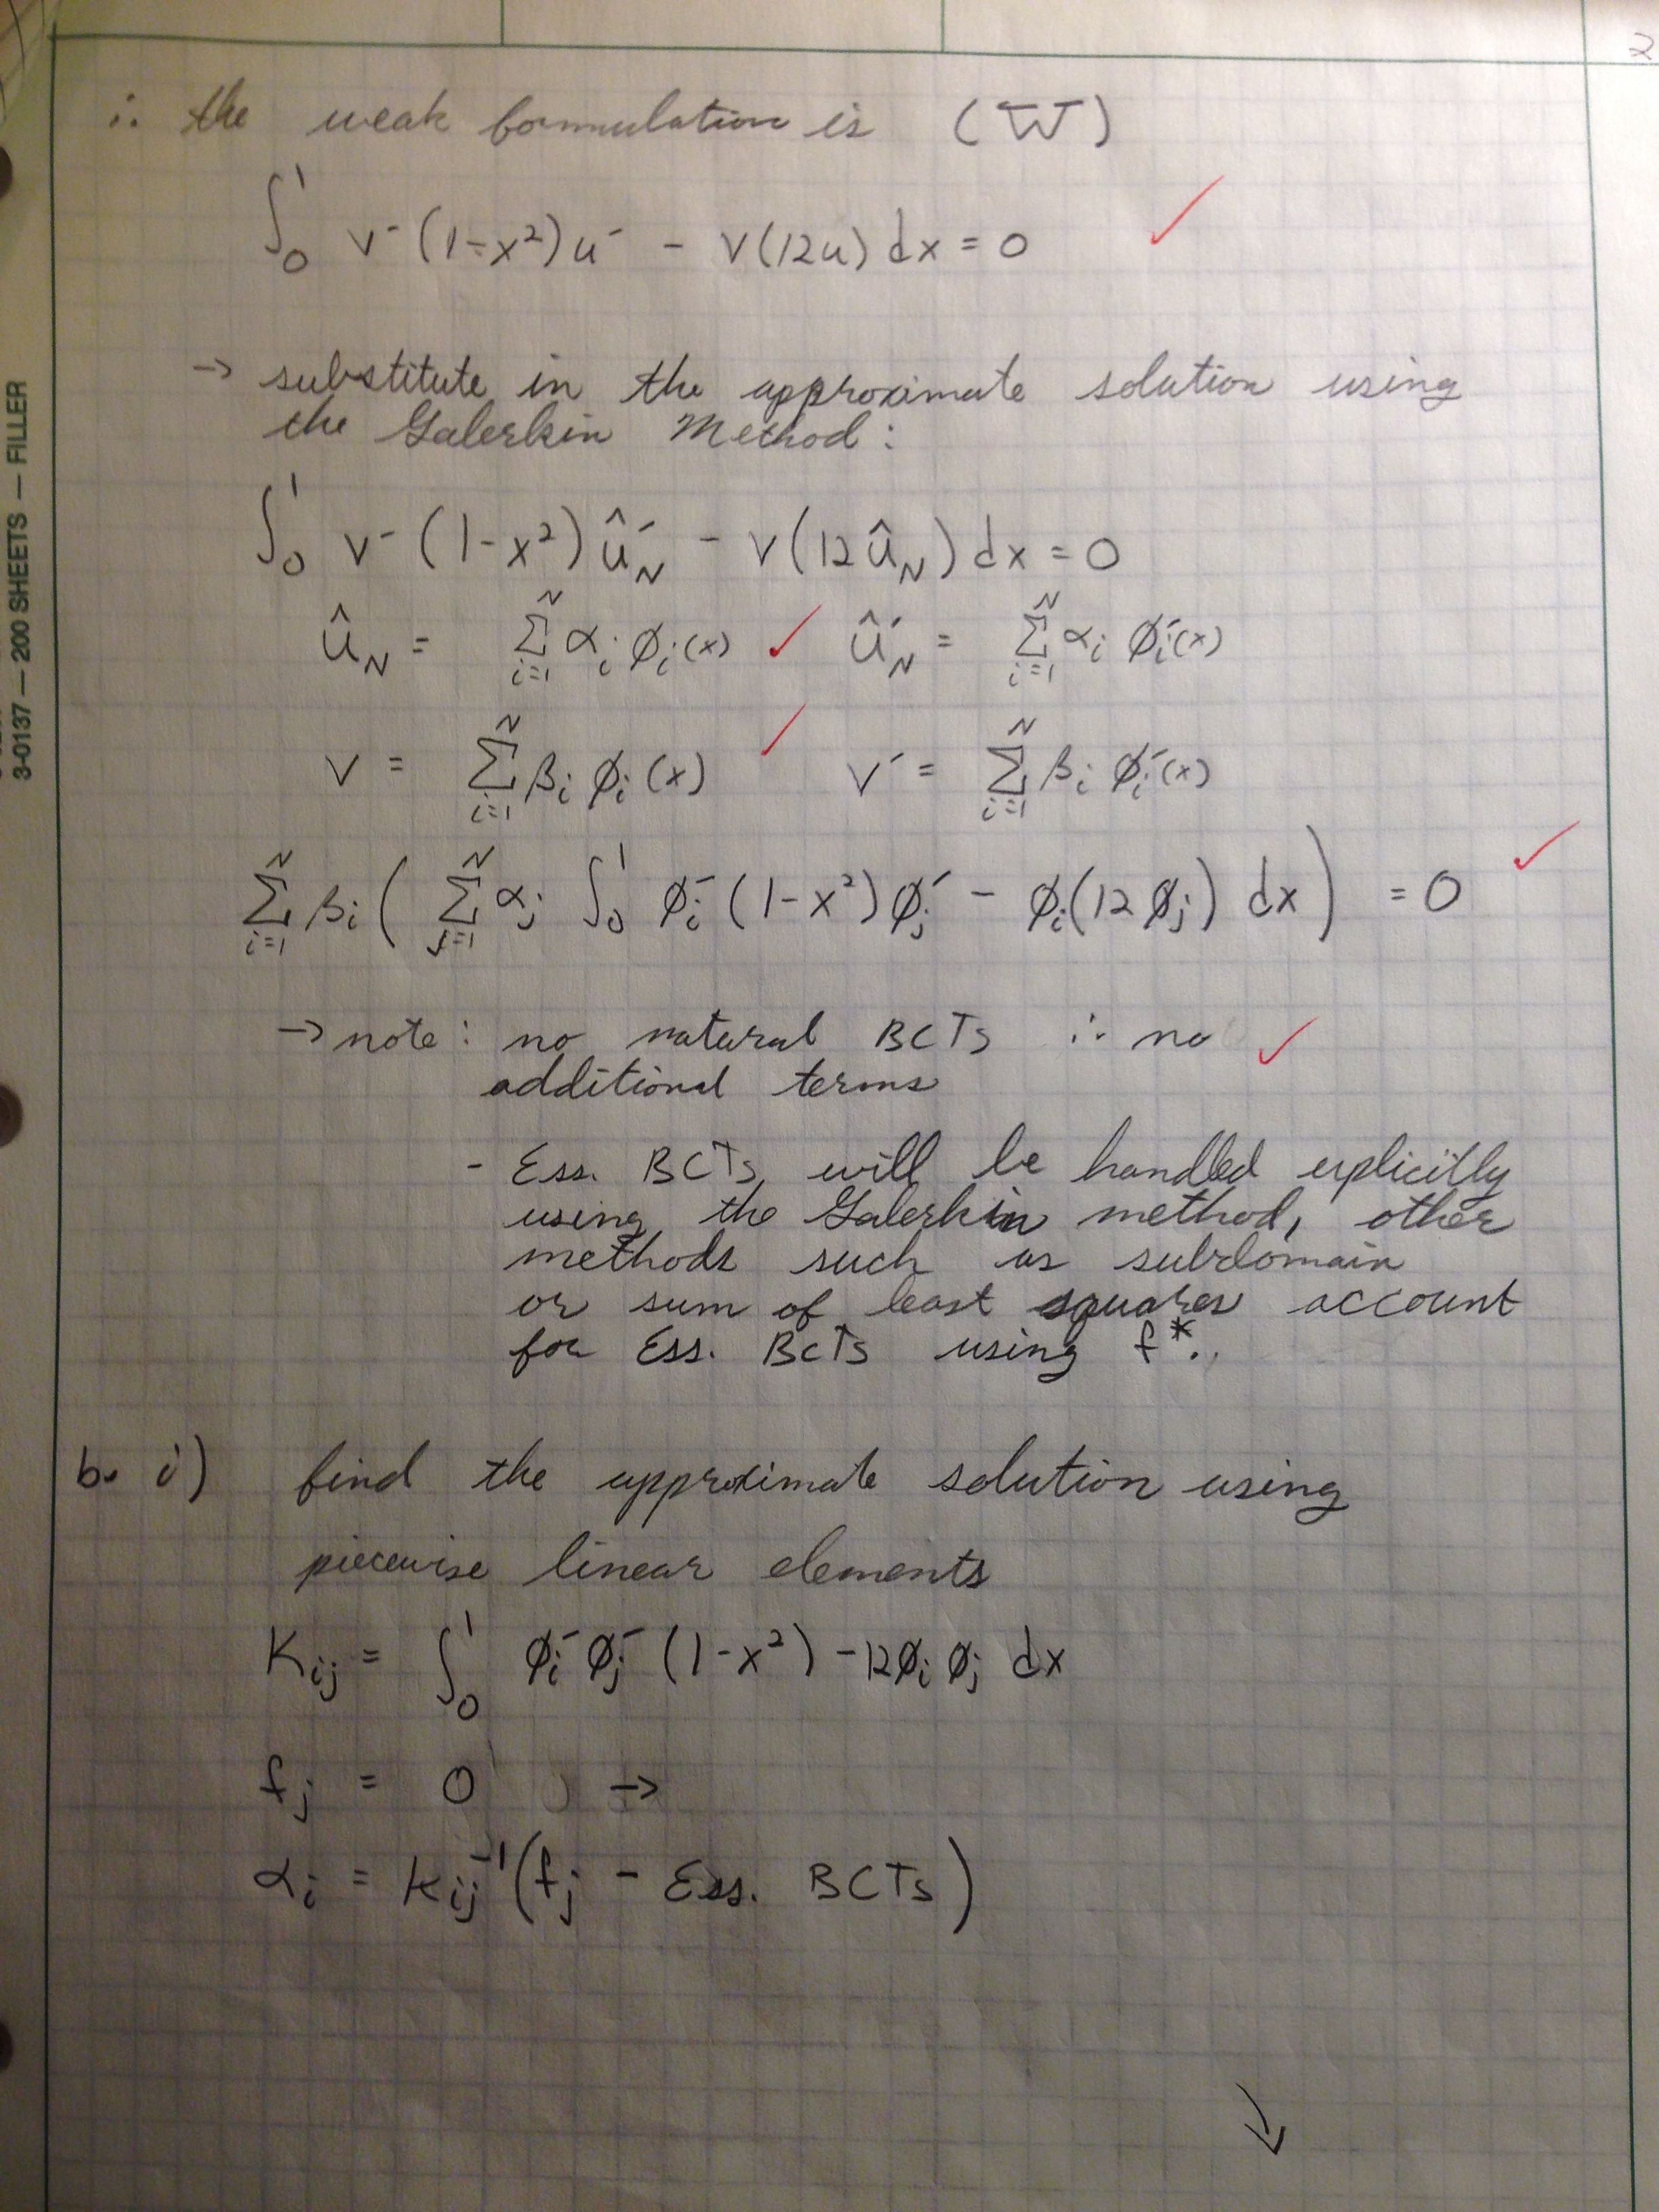 2
3-0137 — 200 SHEETS — FILLER
∴ the weak formulation is (W)
∫₀¹ v′(1-x²)u′ - v(12u) dx = 0 ✓
→ substitute in the approximate solution using
the Galerkin Method:
∫₀¹ v′(1-x²)û′_N - v(12û_N) dx = 0
û_N = Σ_{i=1}^N α_i ϕ_i(x) ✓ û′_N = Σ_{i=1}^N α_i ϕ′_i(x)
v = Σ_{i=1}^N β_i ϕ_i(x) ✓ v′ = Σ_{i=1}^N β_i ϕ′_i(x)
Σ_{i=1}^N β_i ( Σ_{j=1}^N α_j ∫₀¹ ϕ′_i (1-x²) ϕ′_j - ϕ_i(12ϕ_j) dx ) = 0 ✓
→ note: no natural BCTs ∴ no ✓
additional terms
- Ess. BCTs will be handled explicitly
using the Galerkin method, other
methods such as subdomain
or sum of least squares account
for Ess. BCTs using f*.
b. i) find the approximate solution using
piecewise linear elements
K_ij = ∫₀¹ ϕ′_i ϕ′_j (1-x²) - 12ϕ_i ϕ_j dx
f_j = 0 →
α_i = K_ij⁻¹(f_j - Ess. BCTs)
↓